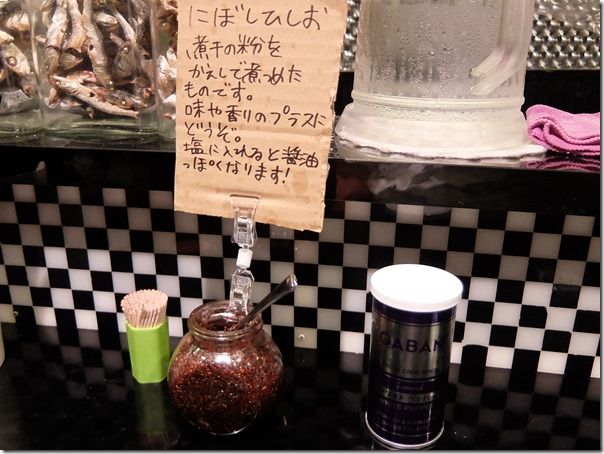 にぼしひしお
煮干の粉を
かえしで煮つめた
ものです。
味や香りのプラスに
どうぞ。
塩に入れると醤油
っぽくなります!
GABAN